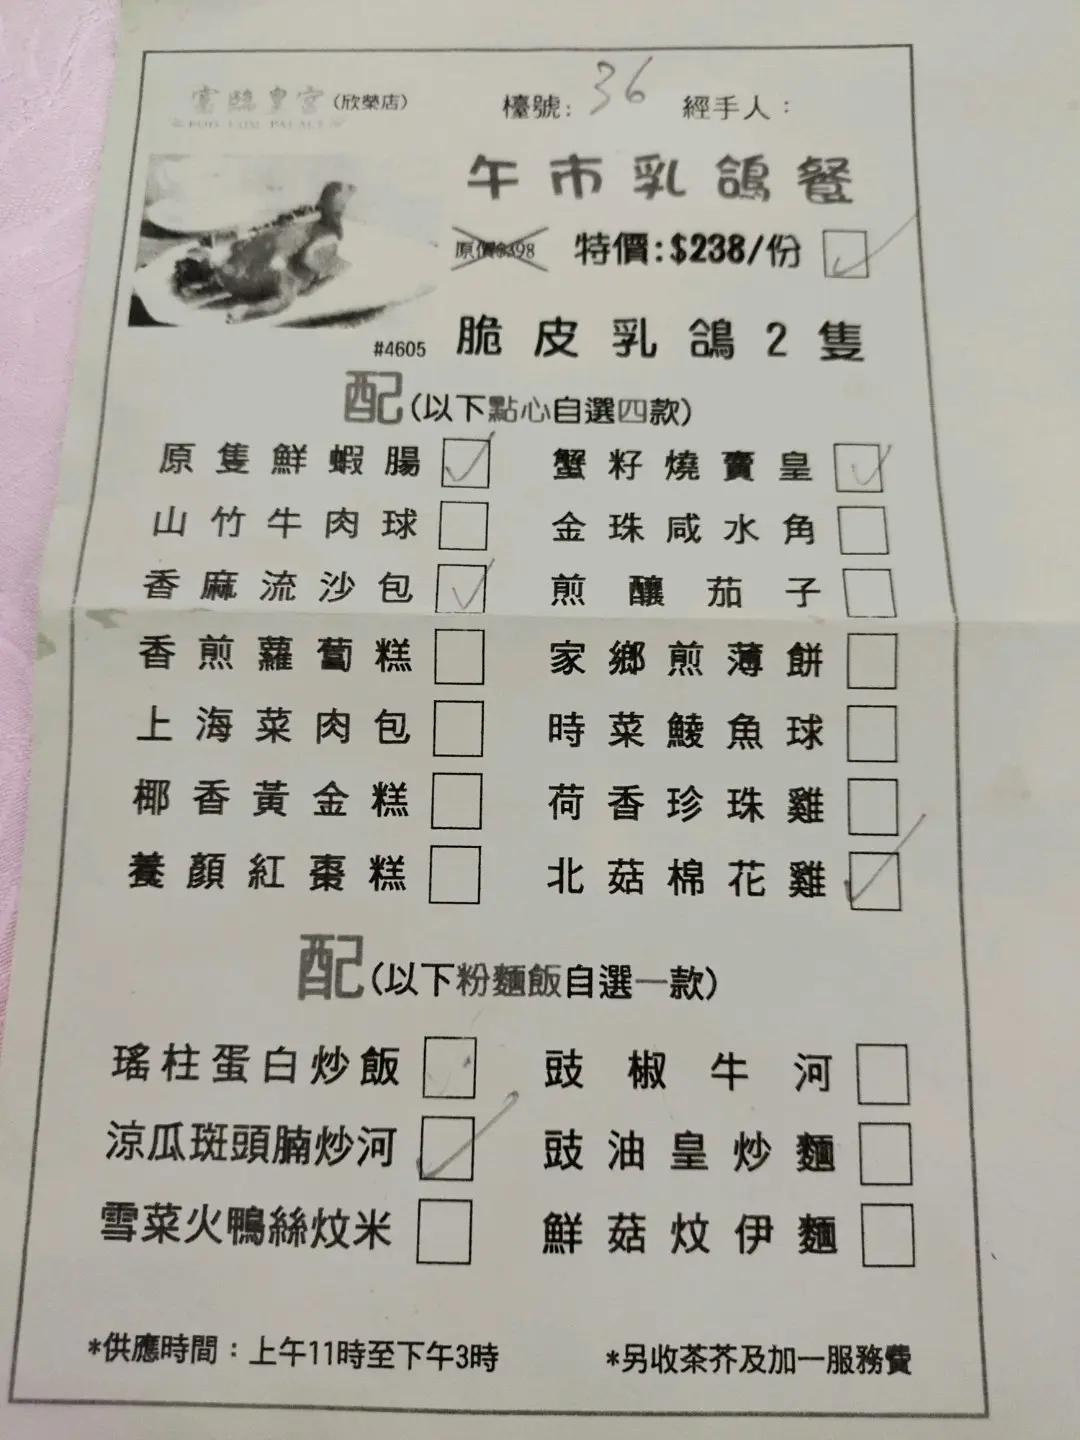 富臨皇宮(欣榮店) 檯號: 36 經手人：
FOO LUM PALACE
午市乳鴿餐
原價$398 特價:$238/份 ✓
#4605 脆皮乳鴿2隻
配(以下點心自選四款)
原隻鮮蝦腸 ✓ 蟹籽燒賣皇 ✓
山竹牛肉球 金珠咸水角
香麻流沙包 ✓ 煎釀茄子
香煎蘿蔔糕 家鄉煎薄餅
上海菜肉包 時菜鯪魚球
椰香黃金糕 荷香珍珠雞
養顏紅棗糕 北菇棉花雞 ✓
配(以下粉麵飯自選一款)
瑤柱蛋白炒飯 豉椒牛河
涼瓜斑頭腩炒河 ✓ 豉油皇炒麵
雪菜火鴨絲炆米 鮮菇炆伊麵
*供應時間：上午11時至下午3時 *另收茶芥及加一服務費